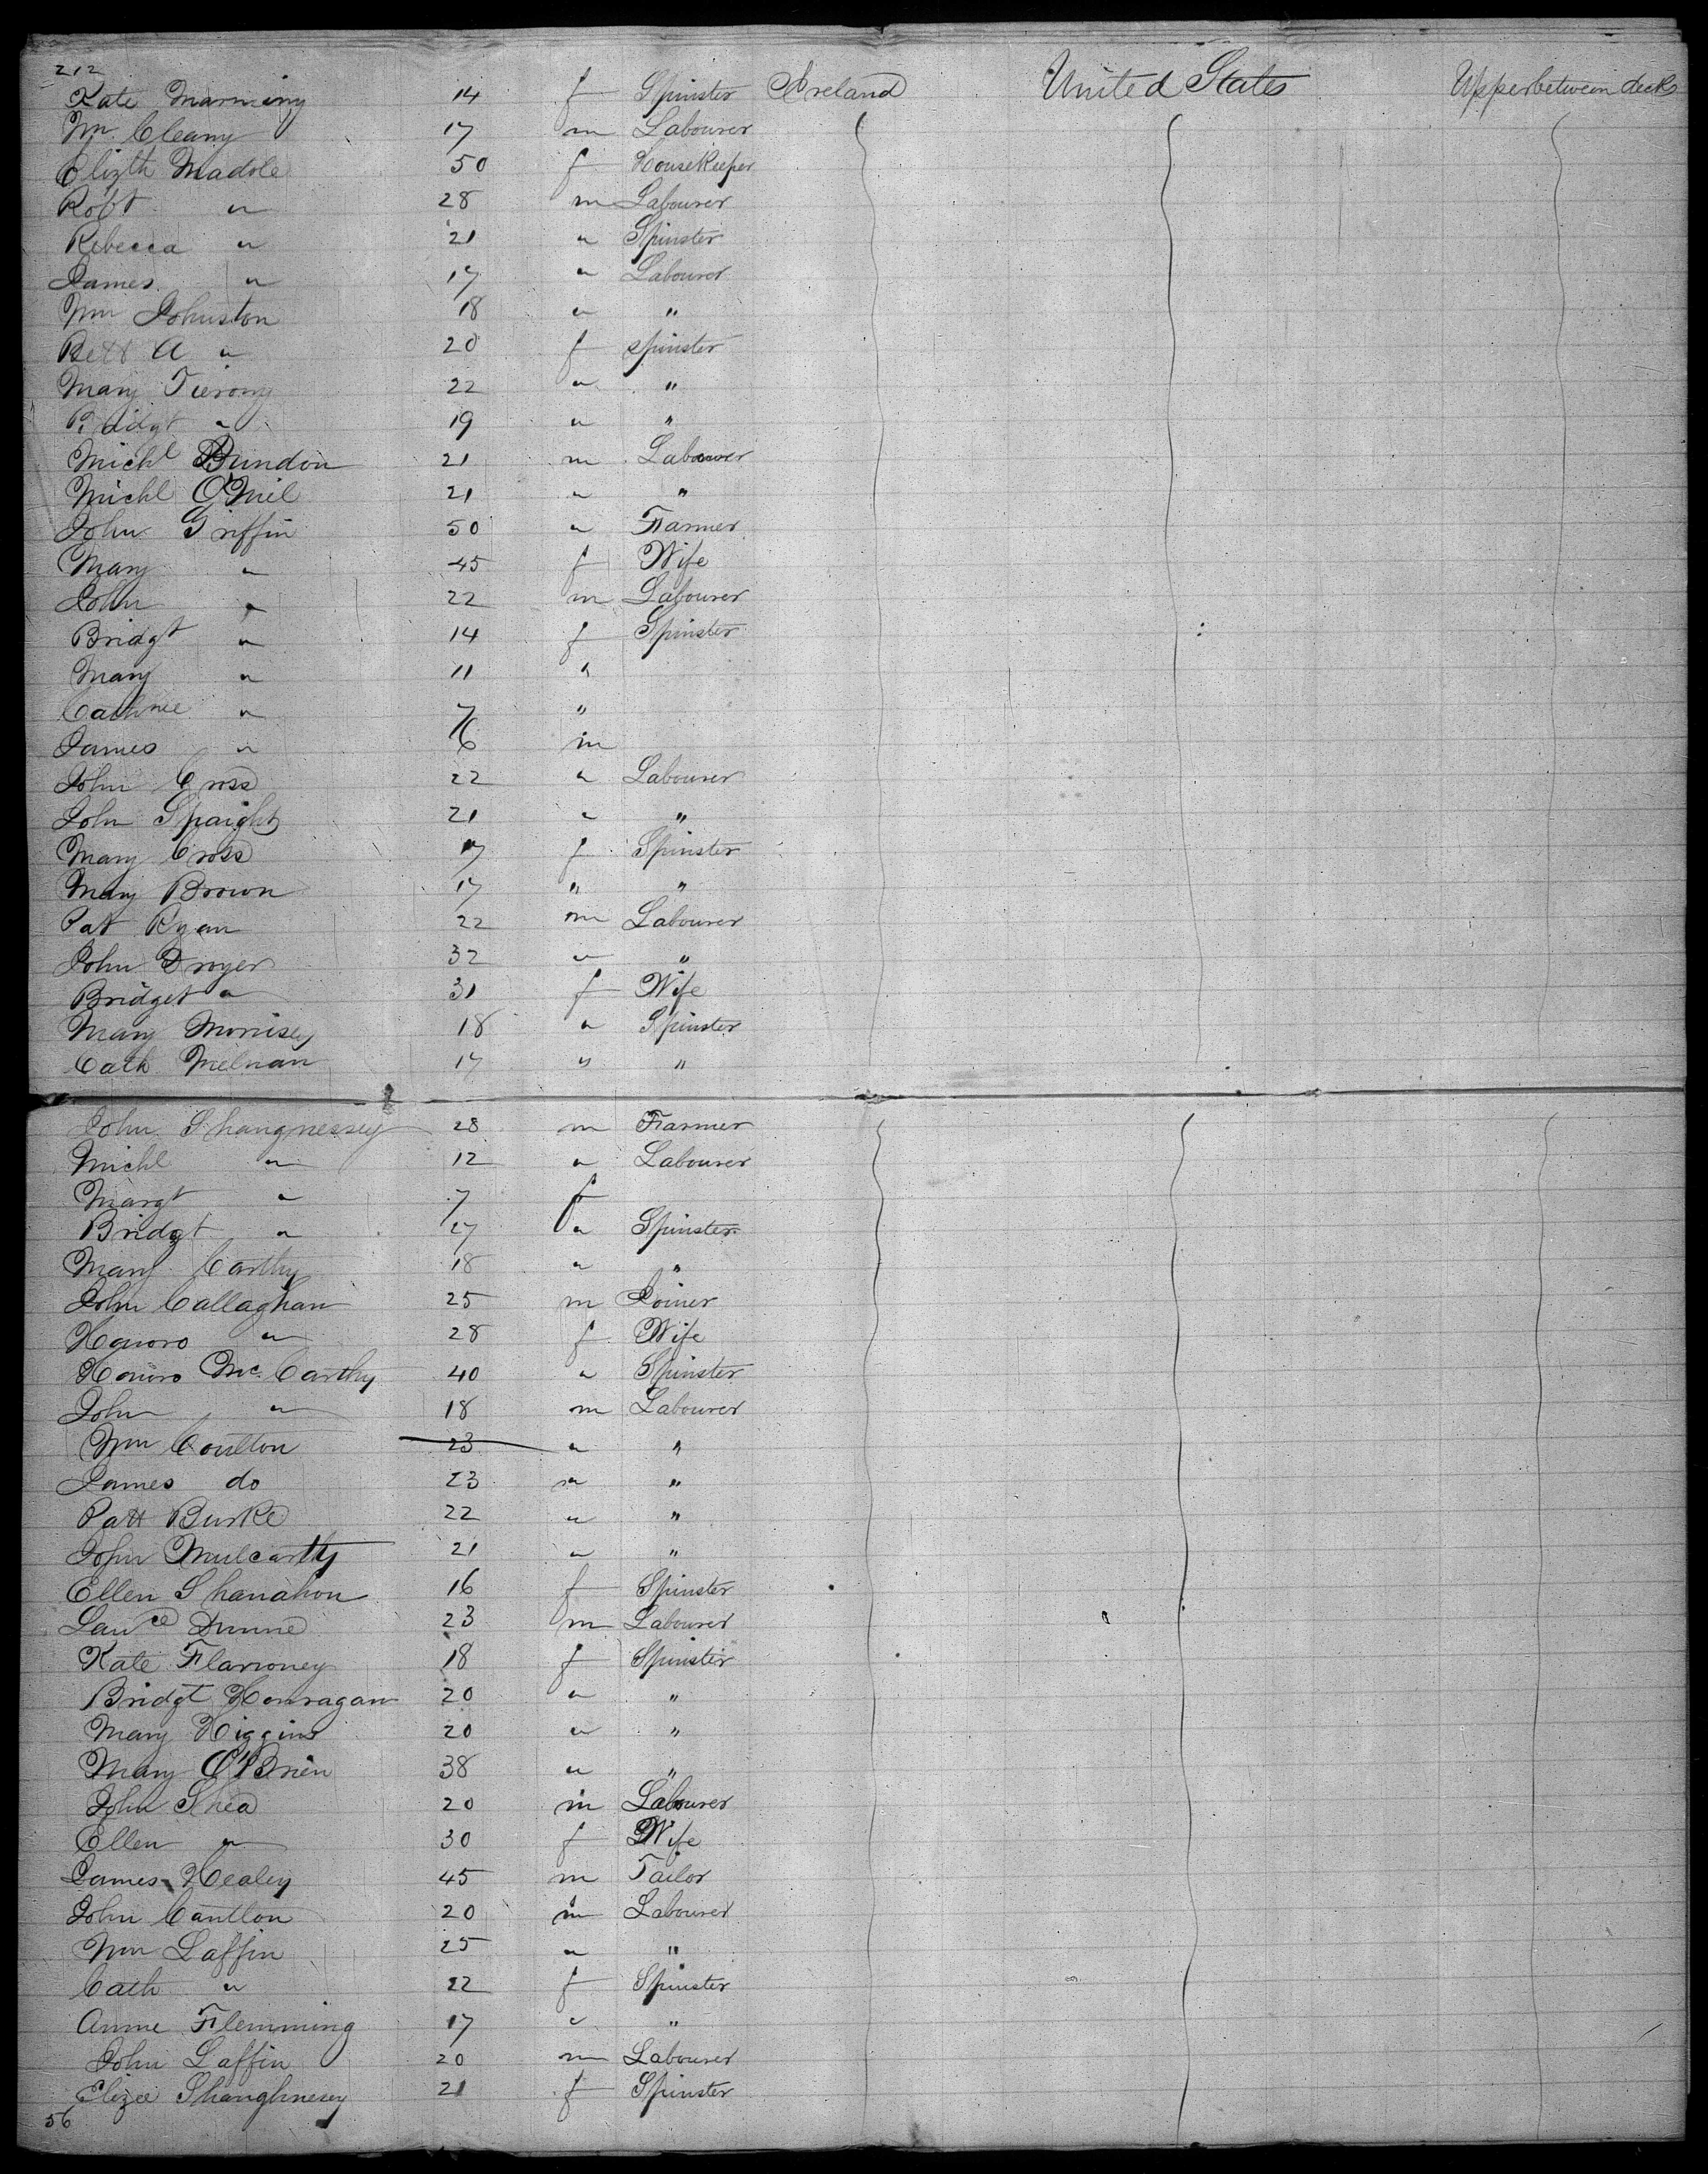 212
Kate Manning 14 f Spinster Ireland United States Upper between decks
Wm Cleany 17 m Labourer
Elizth Madole 50 f Housekeeper
Robt " 28 m Labourer
Rebecca " 21 " Spinster
James " 17 " Labourer
Wm Johnston 18 " "
Bett A " 20 f Spinster
Mary Tierony 22 " "
Bridgt " 19 " "
Michl Bundon 21 m Labourer
Michl O'Neil 21 " "
John Griffin 50 " Farmer
Mary " 45 f Wife
John " 22 m Labourer
Bridgt " 14 f Spinster
Mary " 11 "
Cathne " 7 "
James " 6 m
John Cross 22 " Labourer
John Spaight 21 " "
Mary Cross 17 f Spinster
Mary Brown 17 " "
Pat Ryan 22 m Labourer
John Droyer 32 " "
Bridget " 31 f Wife
Mary Morrisey 18 " Spinster
Cath Melnan 17 " "
John Shangnessey 28 m Farmer
Michl " 12 " Labourer
Margt " 7 f
Bridgt " 17 " Spinster
Mary Carthy 18 " "
John Callaghan 25 m Joiner
Honoro " 28 f Wife
Honoro Mc.Carthy 40 " Spinster
John " 18 m Labourer
Wm Coulton 23 " "
James do 23 " "
Patt Burke 22 " "
John Mulcarthy 21 " "
Ellen Shanahon 16 f Spinster
Lawce Dunne 23 m Labourer
Kate Flaroney 18 f Spinster
Bridgt Honragan 20 " "
Mary Higgins 20 " "
Mary O'Brien 38 " "
John Shea 20 m Labourer
Ellen " 30 f Wife
James Healey 45 m Tailor
John Cantlon 20 m Labourer
Wm Laffin 25 " "
Cath " 22 f Spinster
Anne Flemming 17 " "
John Laffin 20 m Labourer
Elizee Shanghnesey 21 f Spinster
56